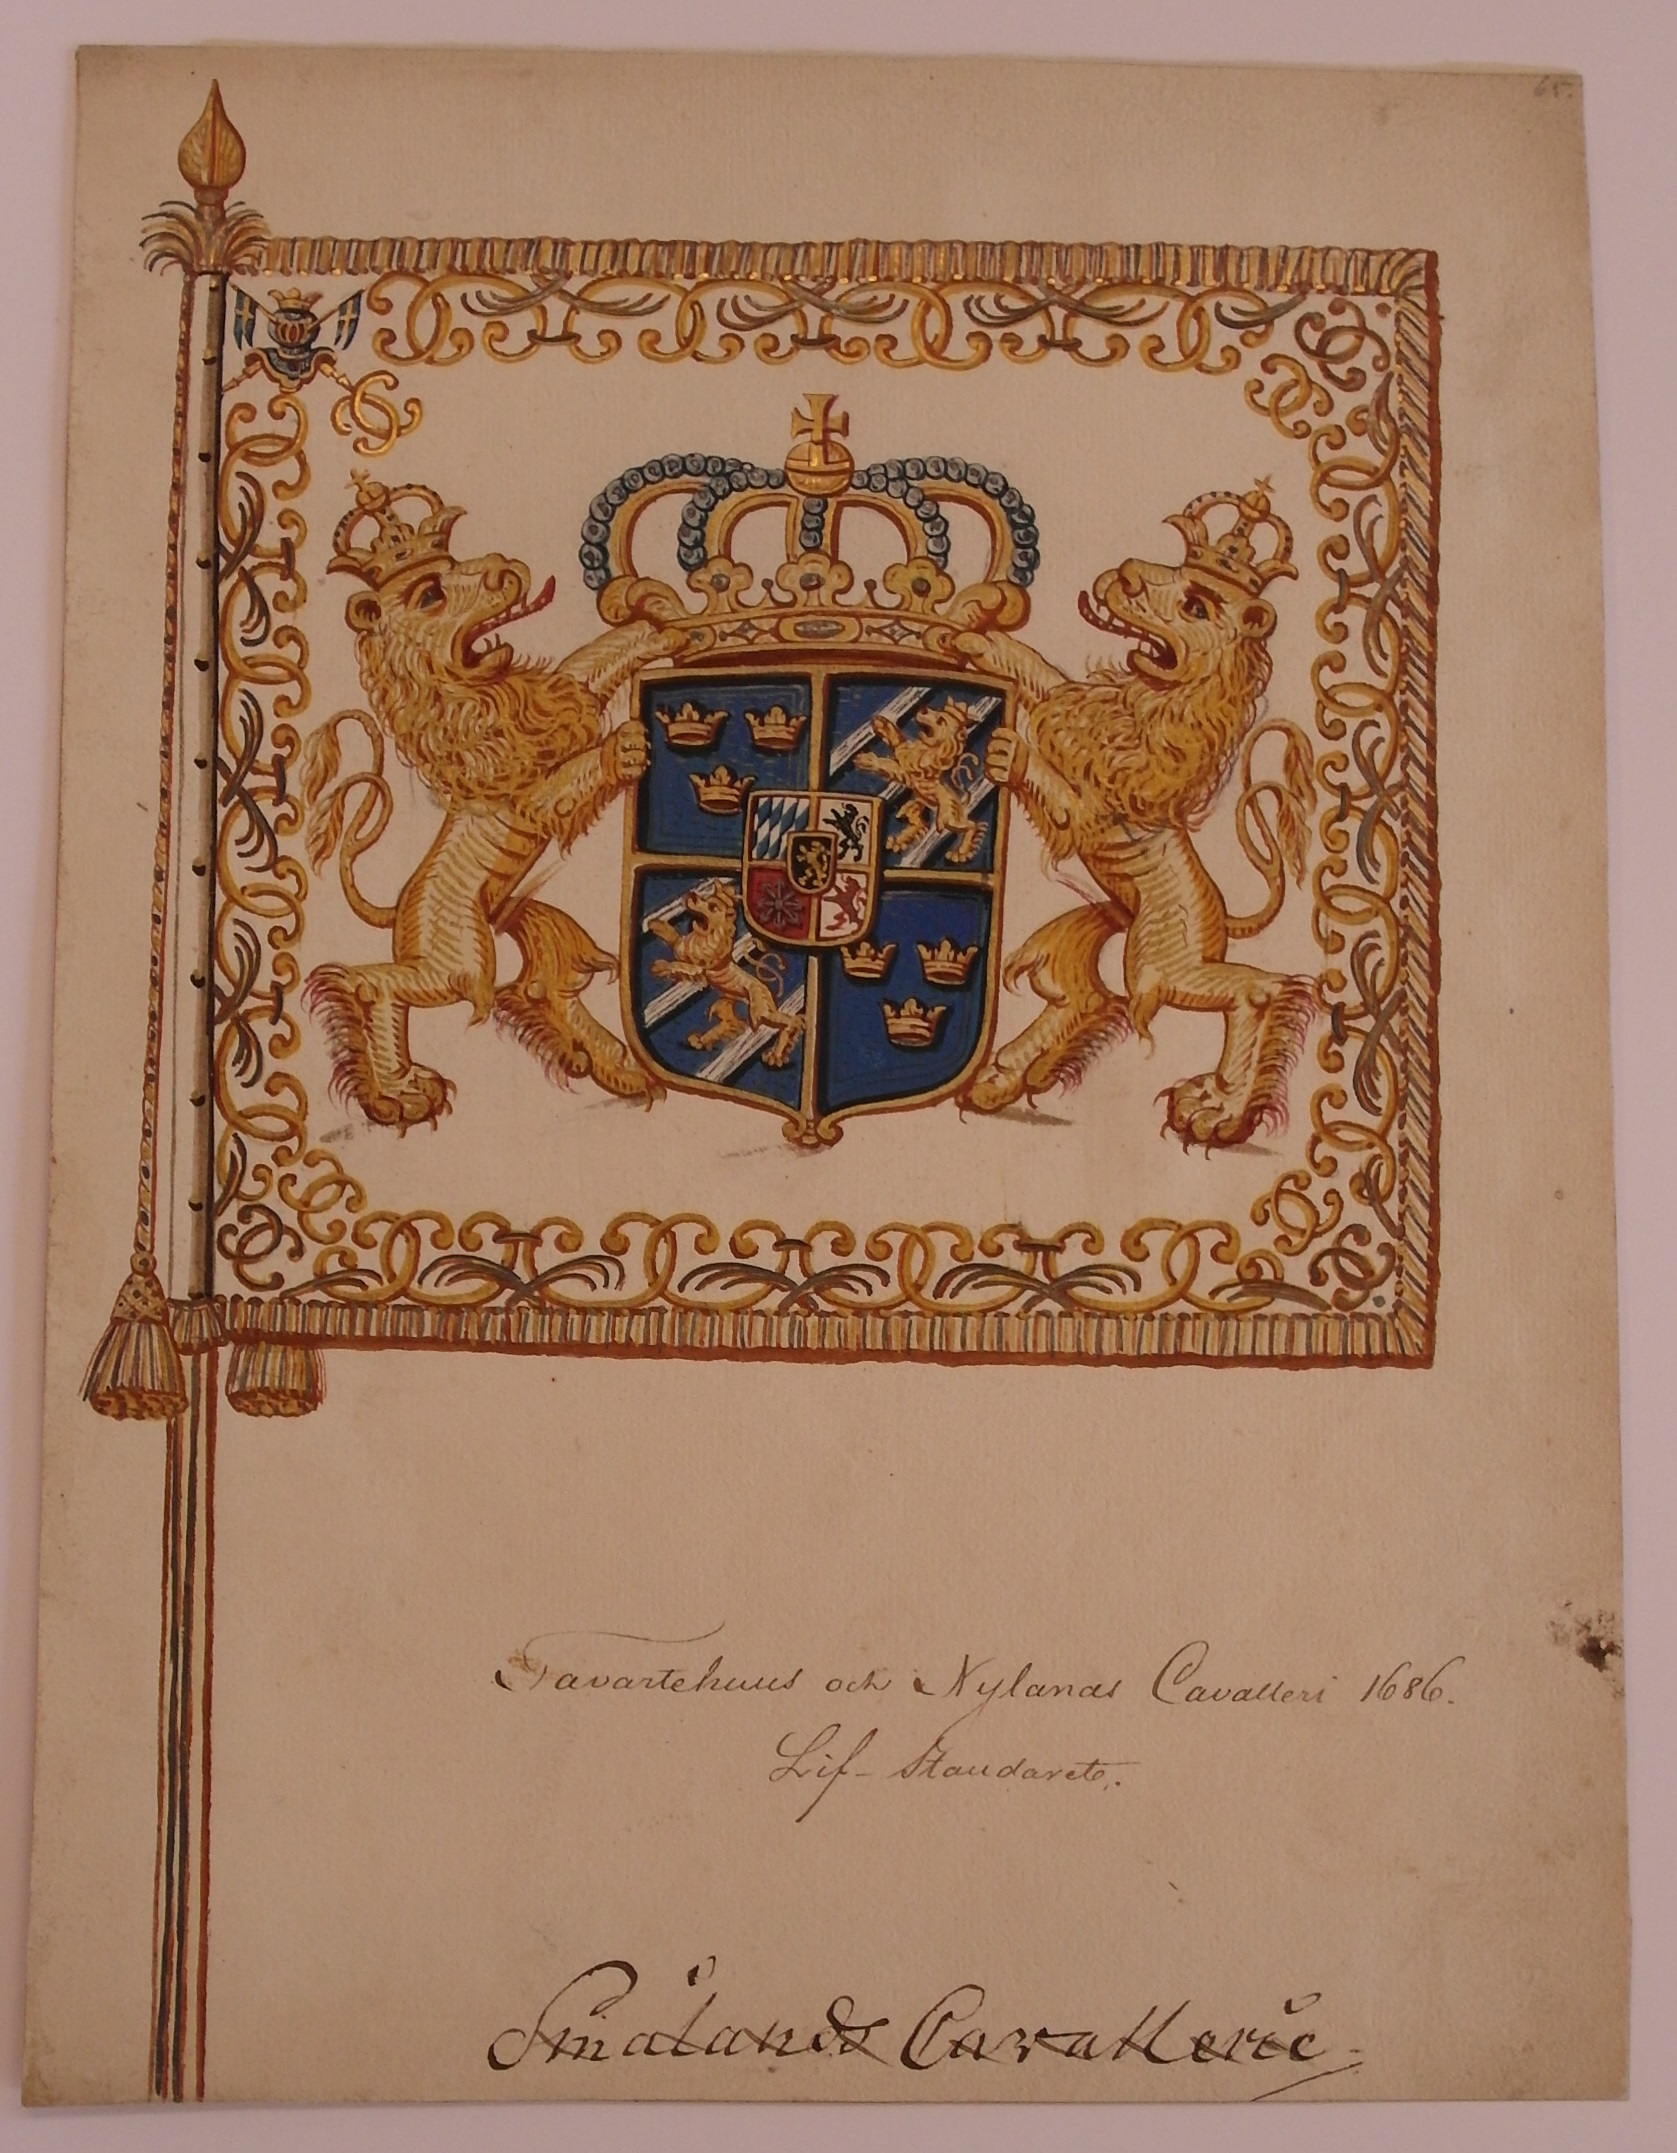 65.
Tavastehuus och Nylands Cavalleri 1686.
Lif-Standaret.
Smålands Cavallerie.